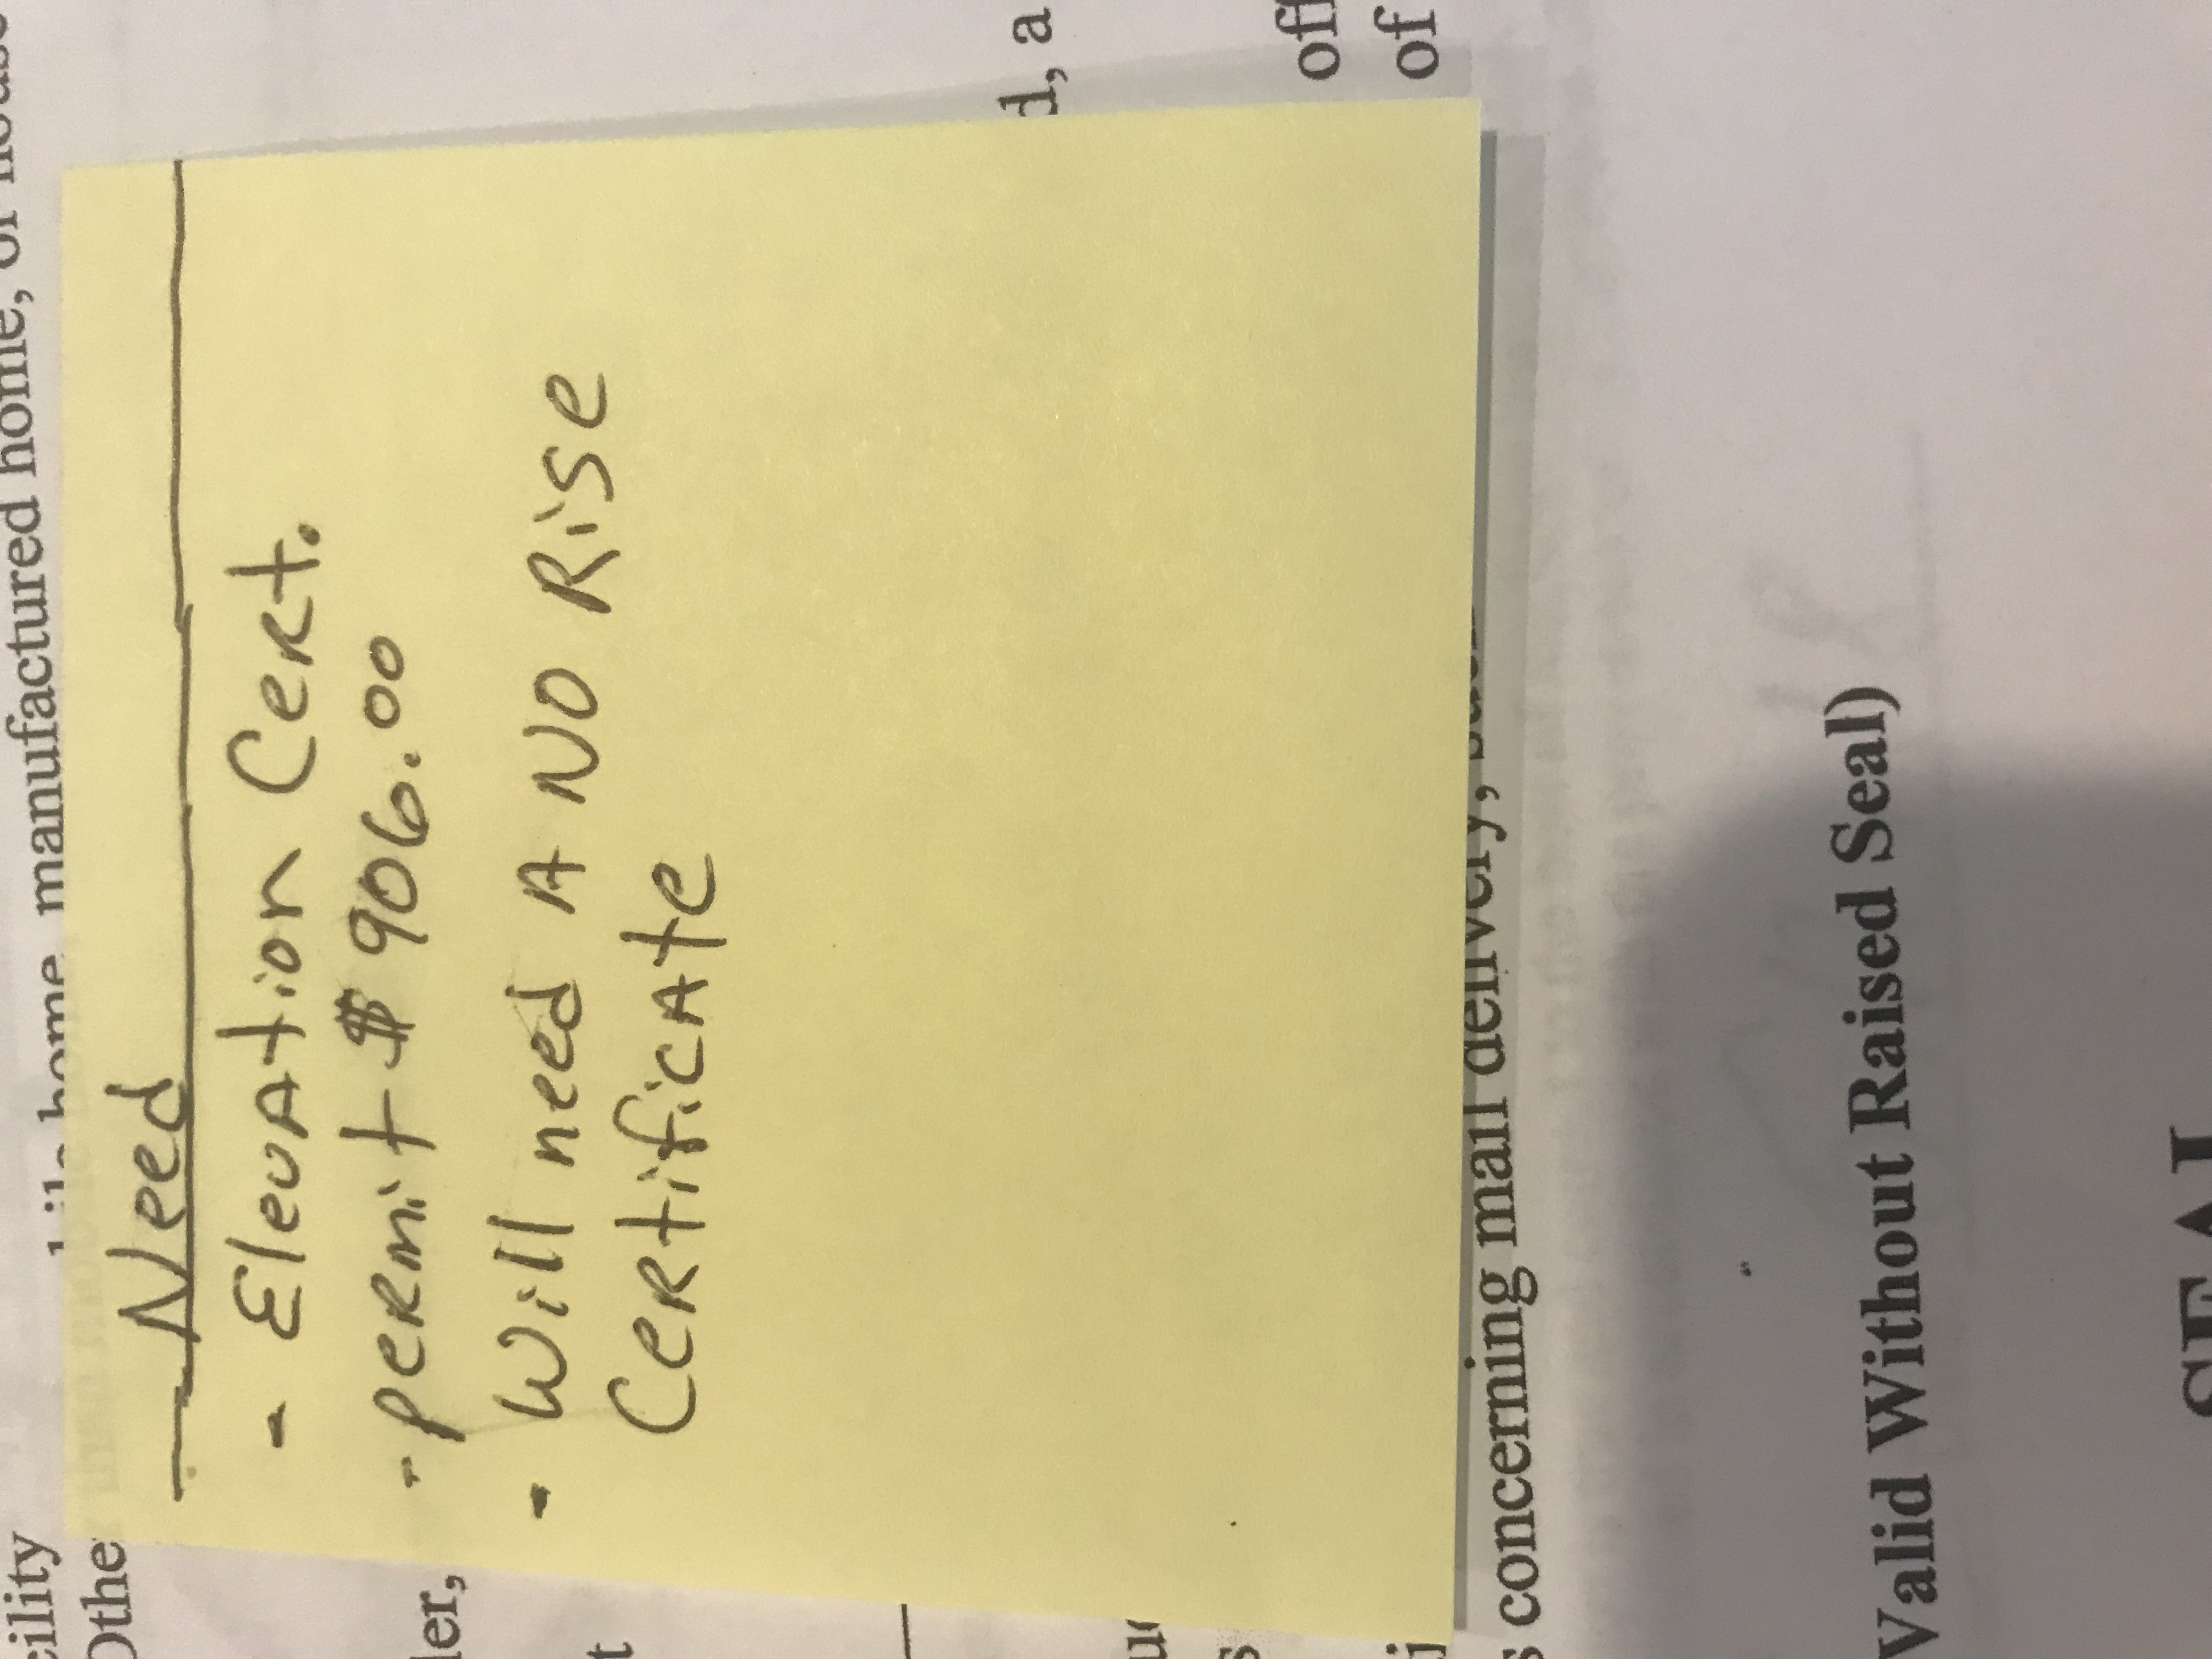 cility
Othe
home, manufactured home, or house
Need
- Elevation Cert.
- permit $906.00
- Will need A NO Rise
Certificate
d, a
of
s concerning mail delivery,
Valid Without Raised Seal)
SEAL